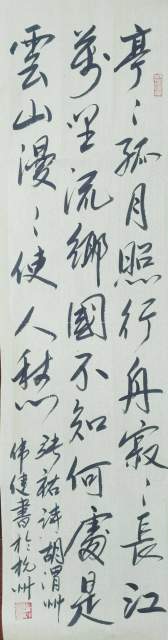 亭〻孤月照行舟寂〻長江
萬里流鄉國不知何處是
雲山漫〻使人愁
張祜詩胡渭州
偉健書於杭州